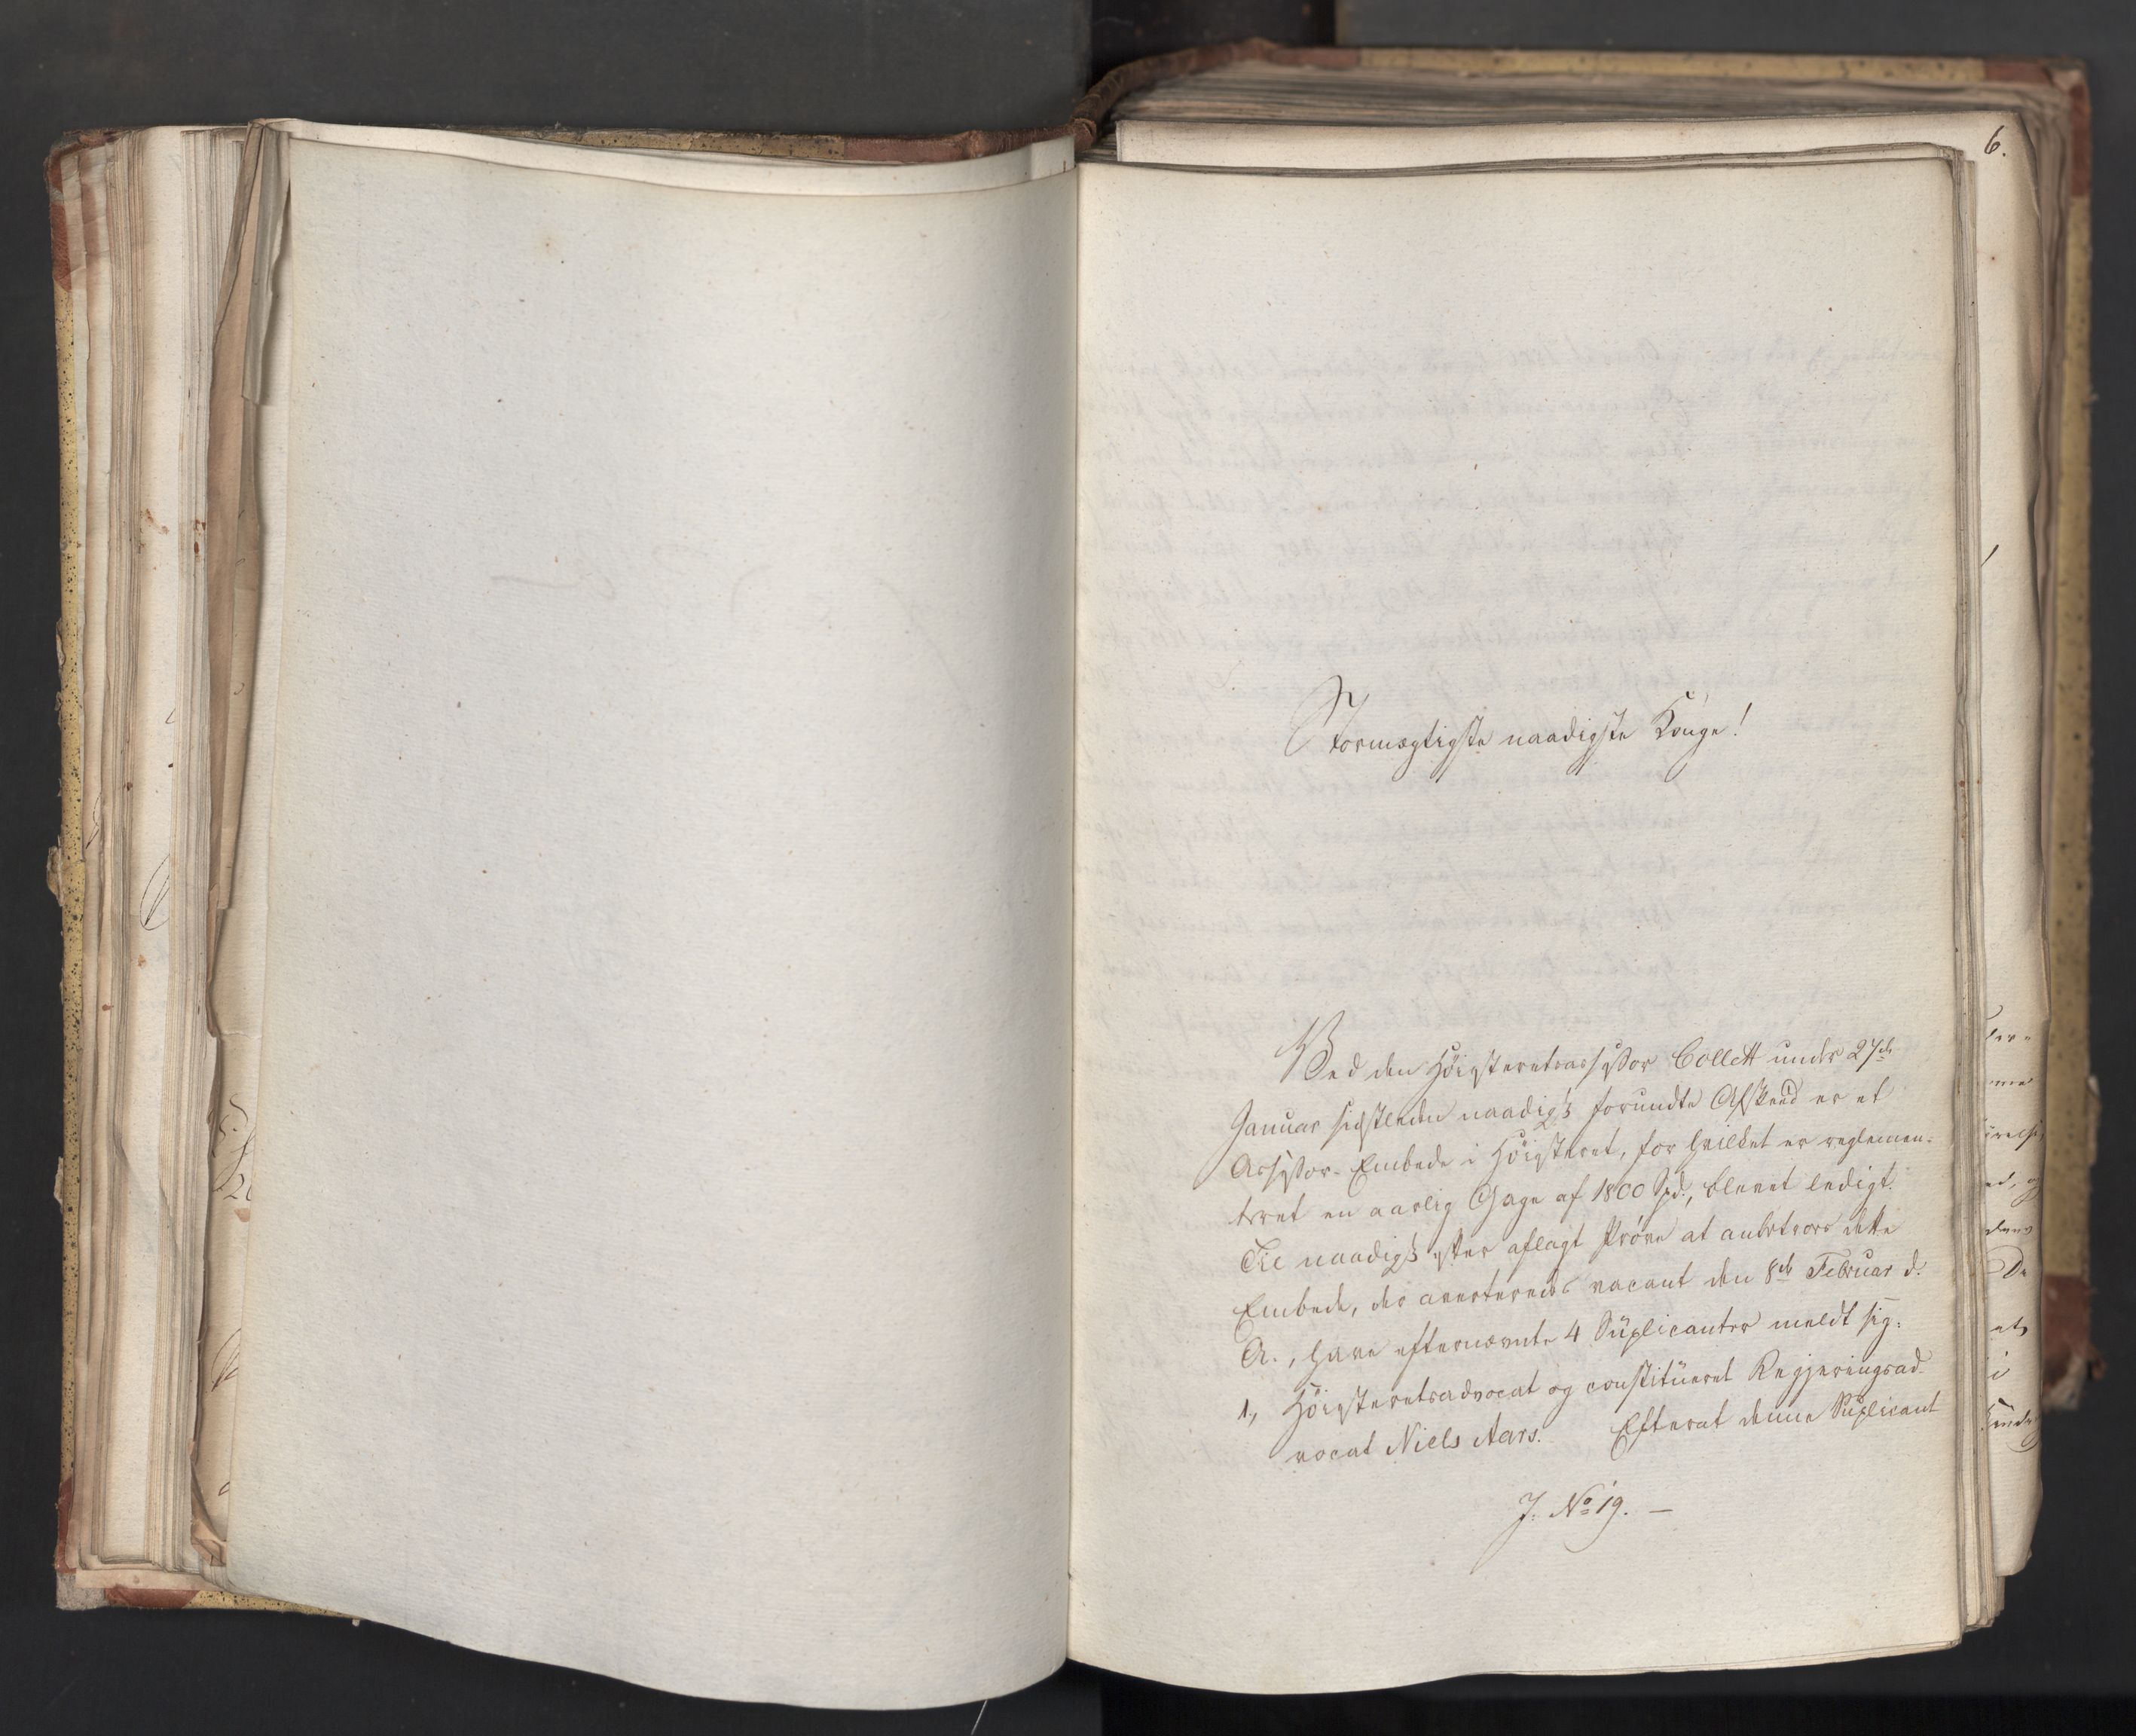 6.
Stormægtigste naadigste Konge!
Ved den Höiesteretsassessor Collett under 27de
Januar sidstleden naadigst forundte Afskeed er et
Assessor-Embede i Höiesteret, for hvilket er reglemen-
teret en aarlig Gage af 1800 Spd., blevet ledigt.
Til naadigst efter aflagt Pröve at anbetroes dette
Embede, der averteredes vacant den 8de Februar d.
A., have efternævnte 4 Supplicanter meldt sig:
1., Höiesteretsadvocat og constitueret Regjeringsad-
vocat Niels Aars. Efterat denne Supplicant
J. No 19. —